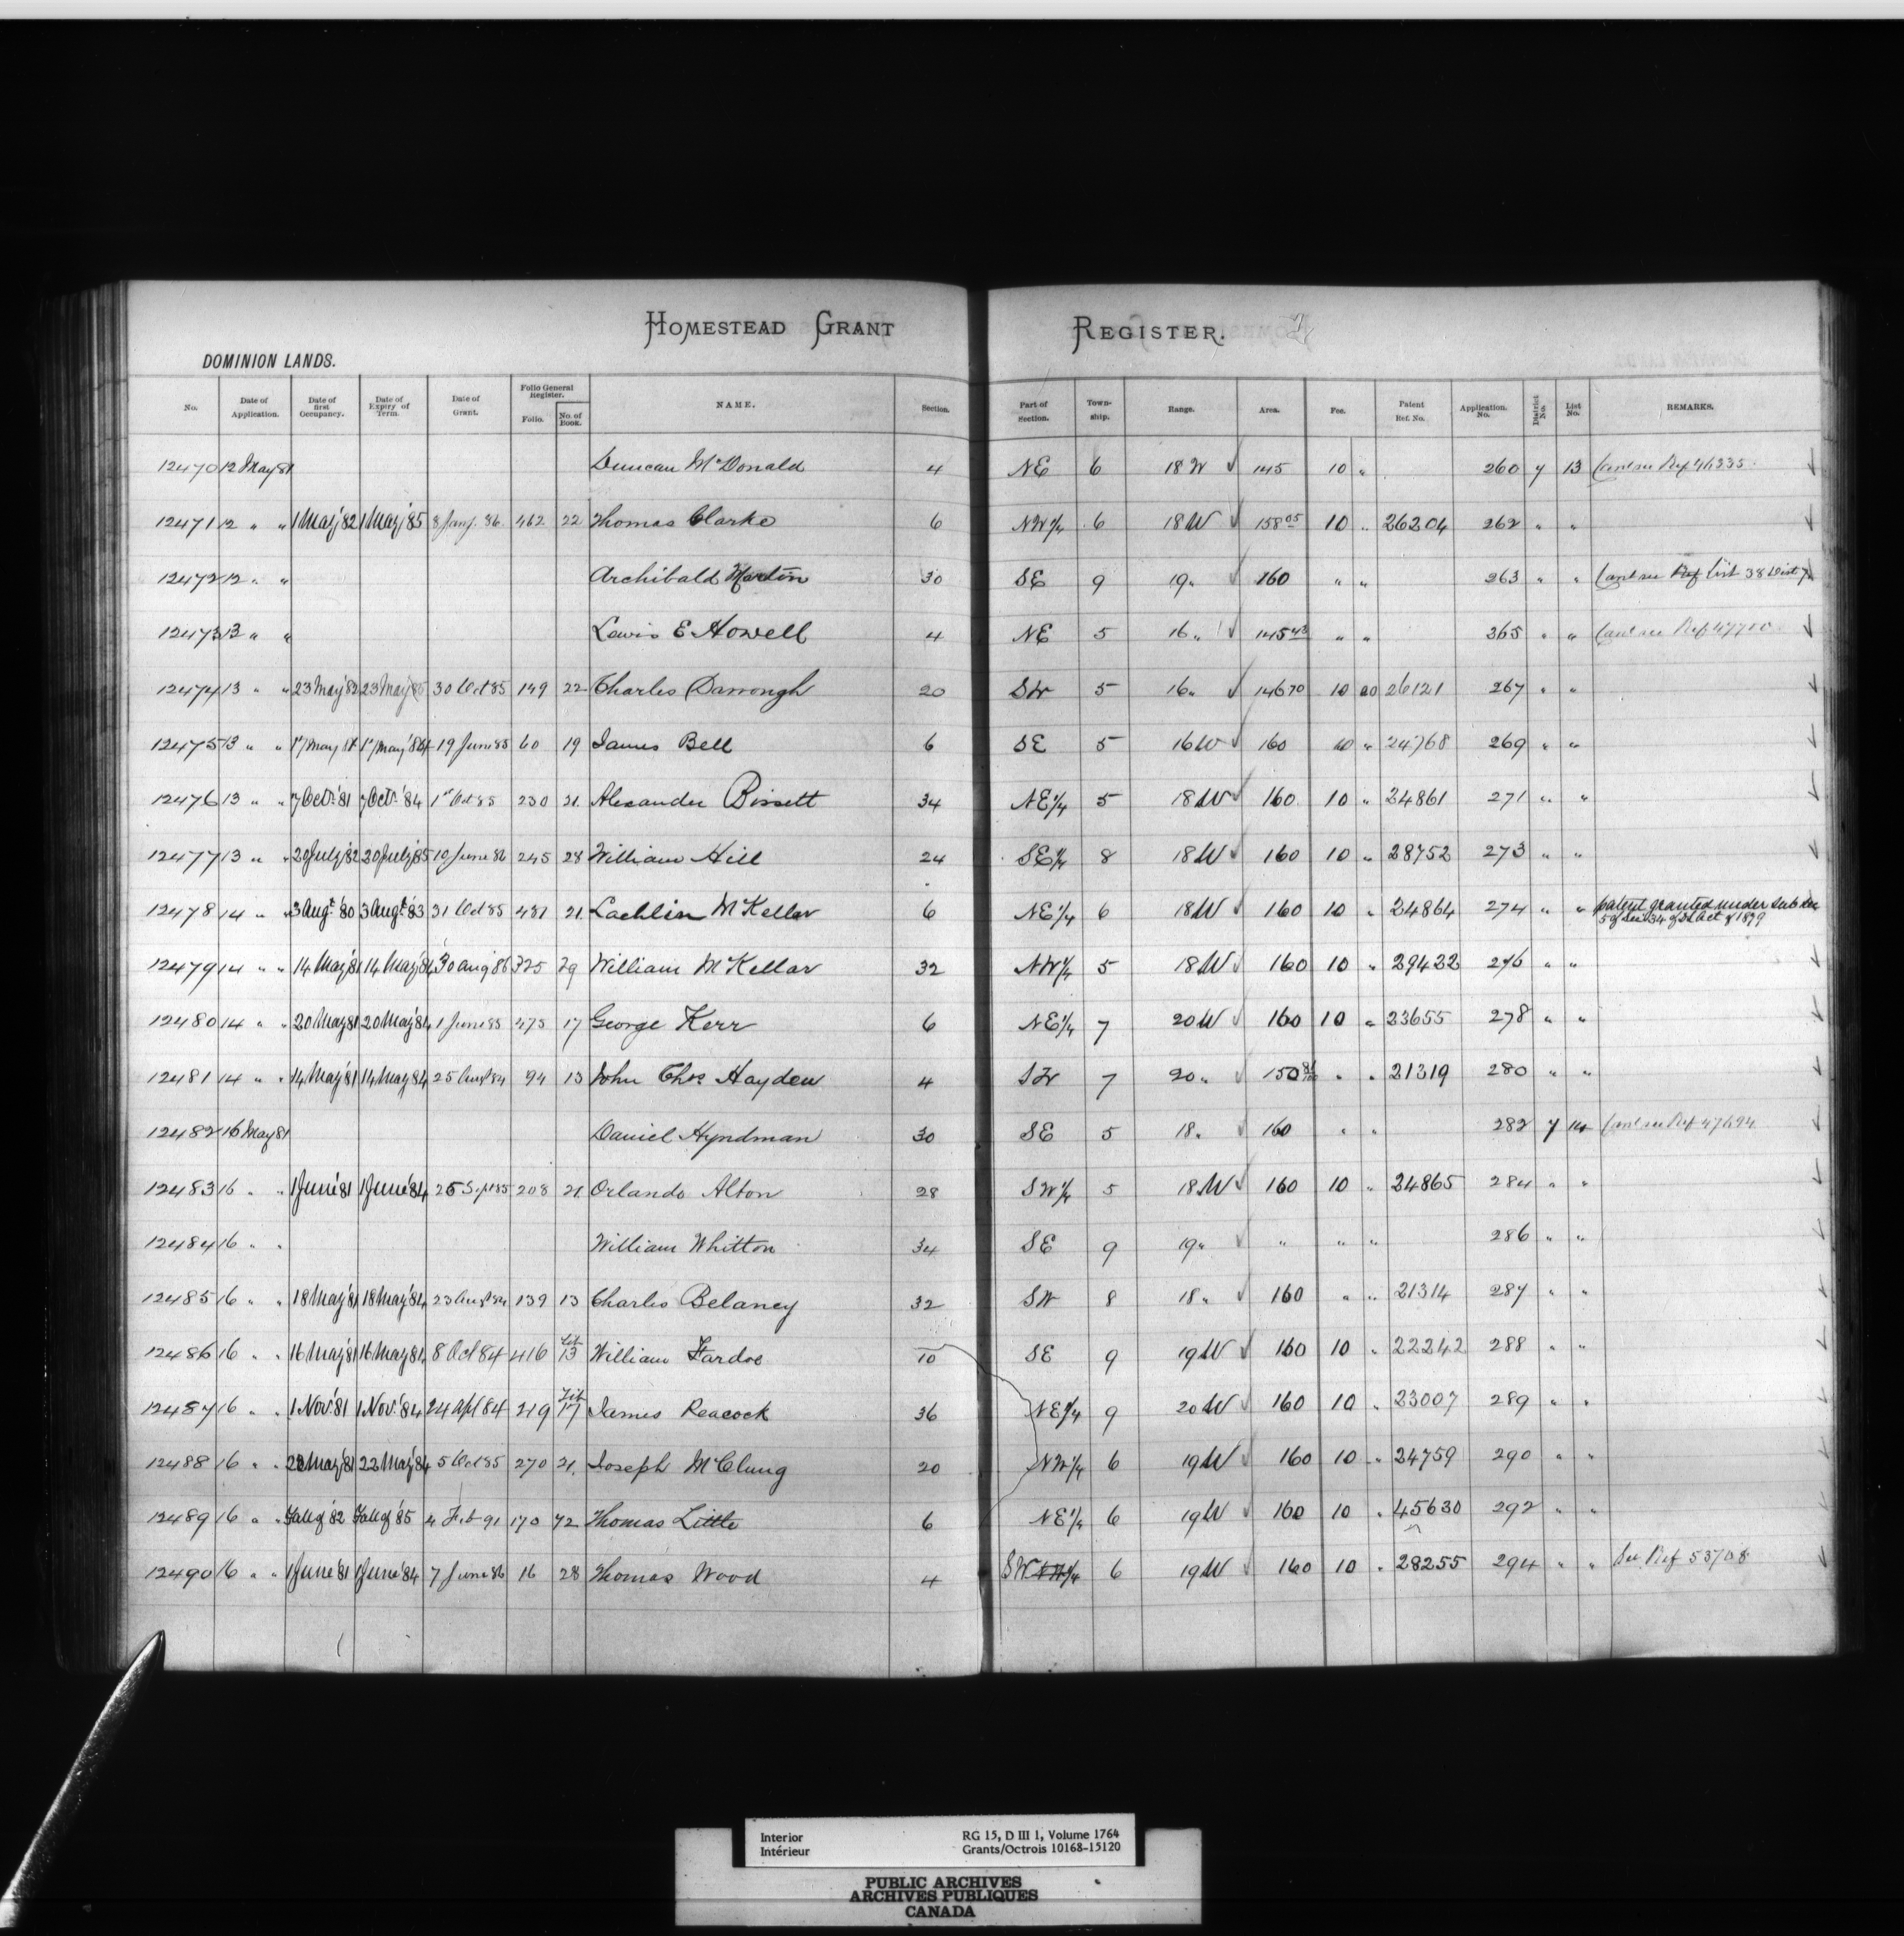 HOMESTEAD GRANT REGISTER.
DOMINION LANDS.
No. Date of Application. Date of first Occupancy. Date of Expiry of Term. Date of Grant. Folio General Register. Folio. No. of Book. NAME. Section. Part of Section. Township. Range. Area. Fee. Patent Ref. No. Application. No. District No. List No. REMARKS.
12470 12 May 81 Duncan McDonald 4 NE 6 18 W 145 10 " 260 7 13
12471 12 " " 1 May '82 1 May '85 8 Jany. 86 462 22 Thomas Clarke 6 NW 1/4 6 18 W 158 05 10 " 26204 262 " "
12472 12 " " Archibald Martin 30 SE 9 19 " 160 " " 263 " " Canl see Ref List 38 Dist 7
12473 13 " " Lewis E Howell 4 NE 5 16 " 145 43 " " 265 " " Canl see Ref 47700
12474 13 " " 23 May '82 23 May '85 30 Oct 85 199 22 Charles Darrough 20 SW 5 16 " 146 70 10 00 26121 267 " "
12475 13 " " 19 June 85 60 19 James Bell 6 SE 5 16 W 160 10 " 24768 269 " "
12476 13 " " 7 Oct. '81 7 Oct. '84 1st Oct 85 230 21 Alexander Bissett 34 NE 1/4 5 18 W 160 10 " 24861 271 " "
12477 13 " " 20 July '82 20 July '85 10 June 86 245 28 William Hill 24 SE 1/4 8 18 W 160 10 " 28752 273 " "
12478 14 " " 3 Augt. '80 3 Augt. '83 31 Oct 85 481 21 Lachlin McKellar 6 NE 1/4 6 18 W 160 10 " 24864 274 " " patent granted under sub sec
5 of Sec 34 of DL Act of 1879
12479 14 " " 14 May '81 14 May '84 30 Aug 86 325 29 William McKellar 32 NW 1/4 5 18 W 160 10 " 29422 276 " "
12480 14 " " 20 May 81 20 May '84 1 June 85 475 17 George Kerr 6 NE 1/4 7 20 W 160 10 " 23655 278 " "
12481 14 " " 14 May '81 14 May 84 25 Augt 84 94 13 John Chs Hayden 4 SW 7 20 " 150 86/100 " " 21319 280 " "
12482 16 May 81 Daniel Hyndman 30 SE 5 18 " 160 " " 282 7 14 Canl see Ref 47694
12483 16 " " 1 June '81 1 June '84 25 Sept 85 208 21 Orlando Alton 28 SW 1/4 5 18 W 160 10 " 24865 284 " "
12484 16 " " William Whitton 34 SE 9 19 " " " " 286 " "
12485 16 " " 18 May '81 18 May '84 23 Augt 84 139 13 Charles Belaney 32 SW 8 18 " 160 " " 21314 287 " "
12486 16 " " 16 May '81 16 May 84 8 Oct 84 416 Lit 13 William Fardoe 10 SE 9 19 W 160 10 " 22242 288 " "
12487 16 " " 1 Nov. '81 1 Nov. '84 24 Apl 84 219 Lit 17 James Peacock 36 NE 1/4 9 20 W 160 10 " 23007 289 " "
12488 16 " " 22 May '81 22 May '84 5 Oct 85 270 21 Joseph McClung 20 NW 1/4 6 19 W 160 10 " 24759 290 " "
12489 16 " " Fall of '82 Fall of '85 4 Feb 91 170 72 Thomas Little 6 NE 1/4 6 19 W 160 10 " 45630 292 " "
12490 16 " " 1 June '81 1 June '84 7 June 86 16 28 Thomas Wood 4 SW 1/4 6 19 W 160 10 " 28255 294 " " See Ref 53708
Interior RG 15, D III 1, Volume 1764
Intérieur Grants/Octrois 10168-15120
PUBLIC ARCHIVES
ARCHIVES PUBLIQUES
CANADA